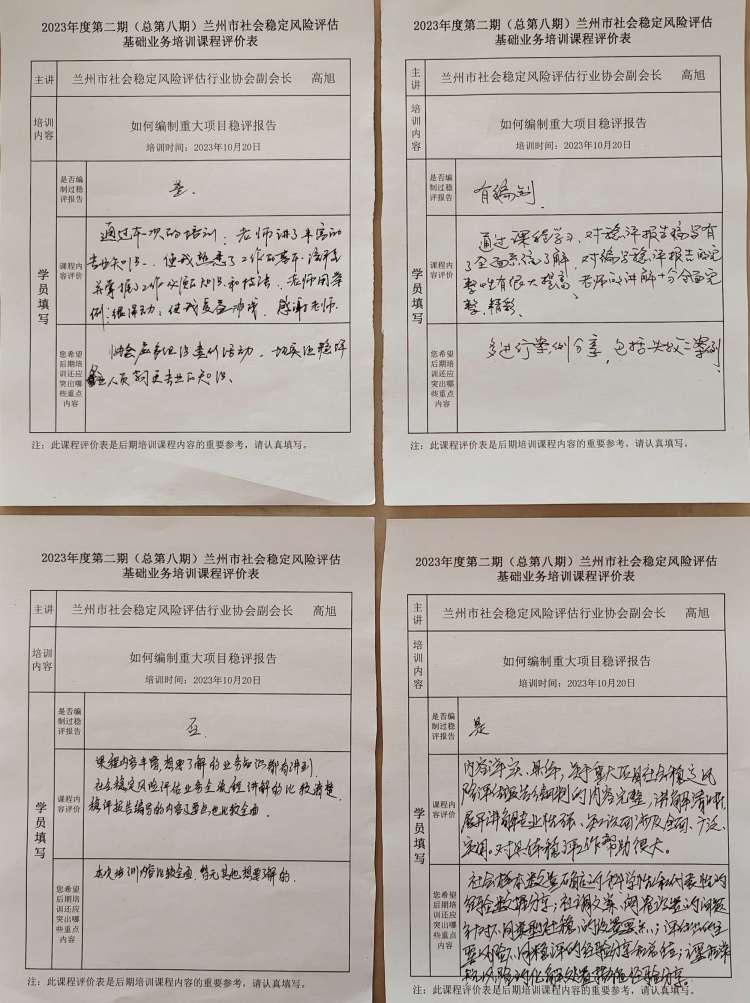 2023年度第二期（总第八期）兰州市社会稳定风险评估
基础业务培训课程评价表
主讲
兰州市社会稳定风险评估行业协会副会长 高旭
培训内容
如何编制重大项目稳评报告
培训时间：2023年10月20日
学员填写
是否编制过稳评报告
是.
课程内容评价
通过本次的培训：老师讲了丰富的
专业知识、使我熟悉了工作的基本流程
并掌握了工作必须知识和技法、老师用案
例：很生动、使我受益 感谢老师.
您希望后期培训还应突出哪些重点内容
协会应多组织系列活动、切实让稳评
人员 更专业的知识、
注：此课程评价表是后期培训课程内容的重要参考，请认真填写。
2023年度第二期（总第八期）兰州市社会稳定风险评估
基础业务培训课程评价表
主讲
兰州市社会稳定风险评估行业协会副会长 高旭
培训内容
如何编制重大项目稳评报告
培训时间：2023年10月20日
学员填写
是否编制过稳评报告
有编制
课程内容评价
通过课程学习、对稳评报告编写有
了全面系统了解、对编写稳评报告的完
整性有很大提高、老师的讲解十分全面完
整、精彩.
您希望后期培训还应突出哪些重点内容
多进行案例分享，包括失败之案例、
注：此课程评价表是后期培训课程内容的重要参考，请认真填写。
2023年度第二期（总第八期）兰州市社会稳定风险评估
基础业务培训课程评价表
主讲
兰州市社会稳定风险评估行业协会副会长 高旭
培训内容
如何编制重大项目稳评报告
培训时间：2023年10月20日
学员填写
是否编制过稳评报告
否.
课程内容评价
课程内容丰富，想要了解的业务知识都有讲到.
社会稳定风险评估业务全流程讲解的比较清楚
稳评报告编写的内容及要点也比较全面.
您希望后期培训还应突出哪些重点内容
本次培训内容比较全面，暂无其他想要了解的.
注：此课程评价表是后期培训课程内容的重要参考，请认真填写。
2023年度第二期（总第八期）兰州市社会稳定风险评估
基础业务培训课程评价表
主讲
兰州市社会稳定风险评估行业协会副会长 高旭
培训内容
如何编制重大项目稳评报告
培训时间：2023年10月20日
学员填写
是否编制过稳评报告
是
课程内容评价
内容详实、具体，关于重大项目社会稳定风
险评估报告编制的内容完整，讲解清晰，
展开讲解专业性强、知识面涉及全面、广泛、
实用。对具体稳评工作帮助很大。
您希望后期培训还应突出哪些重点内容
社会样本数量确定的科学性和代表性的
经验数据分享；社调文案、问卷设置的问题
针对不同类型社稳的设置要点；评估出的主
要风险不同稳评的经验分享和总结；
风险的化解处置 经验分享.
注：此课程评价表是后期培训课程内容的重要参考，请认真填写。